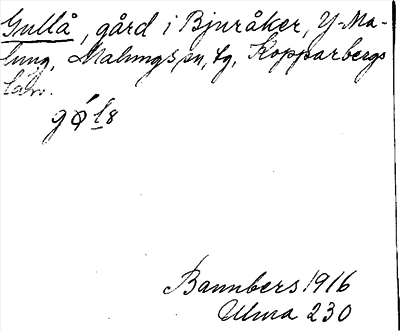 Gullå, gård i Bjuråker, Y-Ma-
lung, Malungs sn, tg, Kopparbergs
län.
Bannbers 1916
Ulma 230